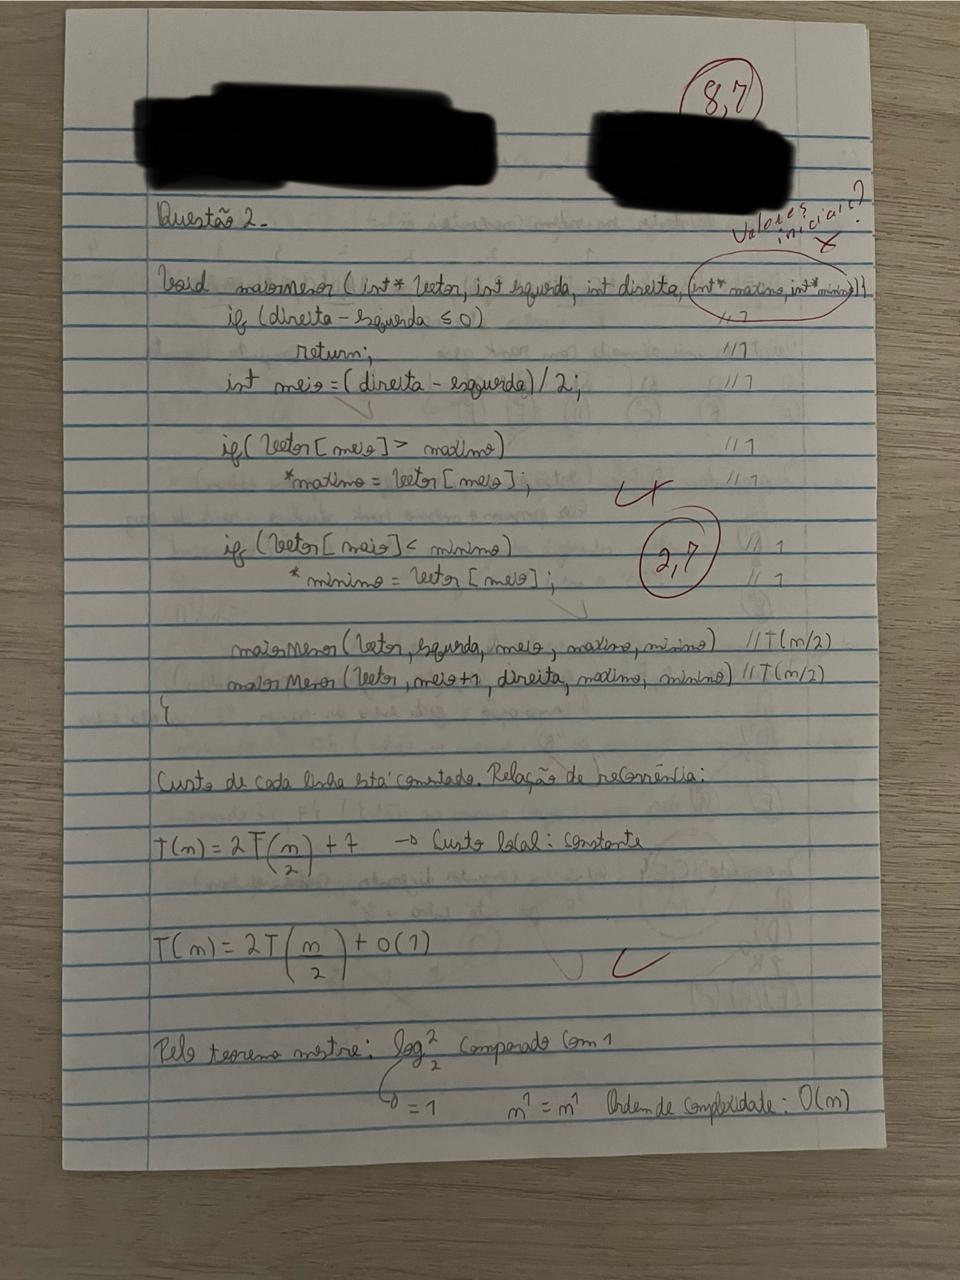 8,7
Questão 2.
Valores iniciais?
void maiorMenor (int* vector, int esquerda, int direita, int* maximo, int* minimo)){
if (direita - esquerda ≤ 0) //1
return; //1
int meio = (direita - esquerda) / 2; //1
if( vector [meio] > maximo) //1
*maximo = vector [meio]; //1
if (vector [meio] < minimo) //1
* minimo = vector [meio]; //1
2,7
maiorMenor (vector, esquerda, meio, maximo, minimo) //T(n/2)
maiorMenor (vector, meio+1, direita, maximo, minimo) //T(n/2)
}
Custo de cada linha está comentado. Relação de recorrência:
T(n) = 2T(n/2) + 7 → Custo local: constante
T(n) = 2T(n/2) + O(1)
Pelo teorema mestre: log₂² comparado com 1
= 1 n¹ = n¹ Ordem de complexidade: O(n)